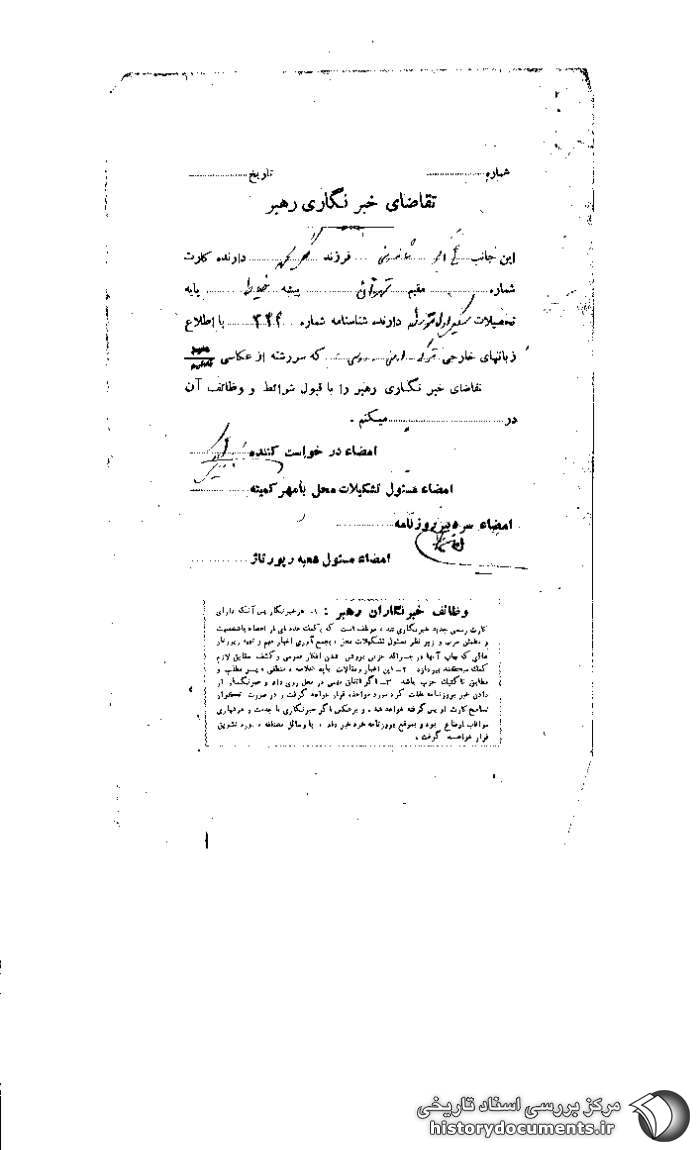 شماره ........ تاریخ ........
تقاضای خبر نگاری رهبر
این جانب ........ فرزند ........ دارنده کارت
شماره ........ مقیم تهران ........ پیشه خیاط ........ پایه
تحصیلات ........ دارنده شناسنامه شماره ........ با اطلاع
زبانهای خارجی ترکی ارمنی روسی ........ که سررشته از عکاسی
تقاضای خبر نگاری رهبر را با قبول شرائط و وظائف آن
در ........ میکنم .
امضاء درخواست کننده
امضاء مسئول تشکیلات محل بامهر کمیته ........
امضاء سردبیر روزنامه ........
امضاء مسئول شعبه رپورتاژ ........
وظائف خبرنگاران رهبر : ۱- هر خبرنگار پس از آنکه دارای
کارت رسمی جدید خبرنگاری شد ، موظف است که بکمک عده ای از اعضاء باشخصیت
و مطمئن حزب و زیر نظر مسئول تشکیلات محل ، بجمع آوری اخبار مهم و تهیه رپورتاژ
هائی که چاپ آنها در جرائد حزبی بروشن شدن افکار عمومی و کشف حقایق لازم
کمک میکنند بپردازد ۲- این اخبار و مقالات باید خلاصه ، منطقی ، پر مطلب و
مطابق تاکتیک حزب باشد ۳- اگر اتفاق مهمی در محل روی داد و خبرنگار از
دادن خبر بروزنامه غفلت کرد مورد مؤاخذه قرار خواهد گرفت و در صورت تکرار
تسامح کارت او پس گرفته خواهد شد . و برعکس اگر خبرنگاری با جدیت و هوشیاری
مواظب اوضاع بود و بموقع بروزنامه خود خبر داد ، با وسائل مختلفه مورد تشویق
قرار خواهد گرفت .
مرکز بررسی اسناد تاریخی
historydocuments.ir